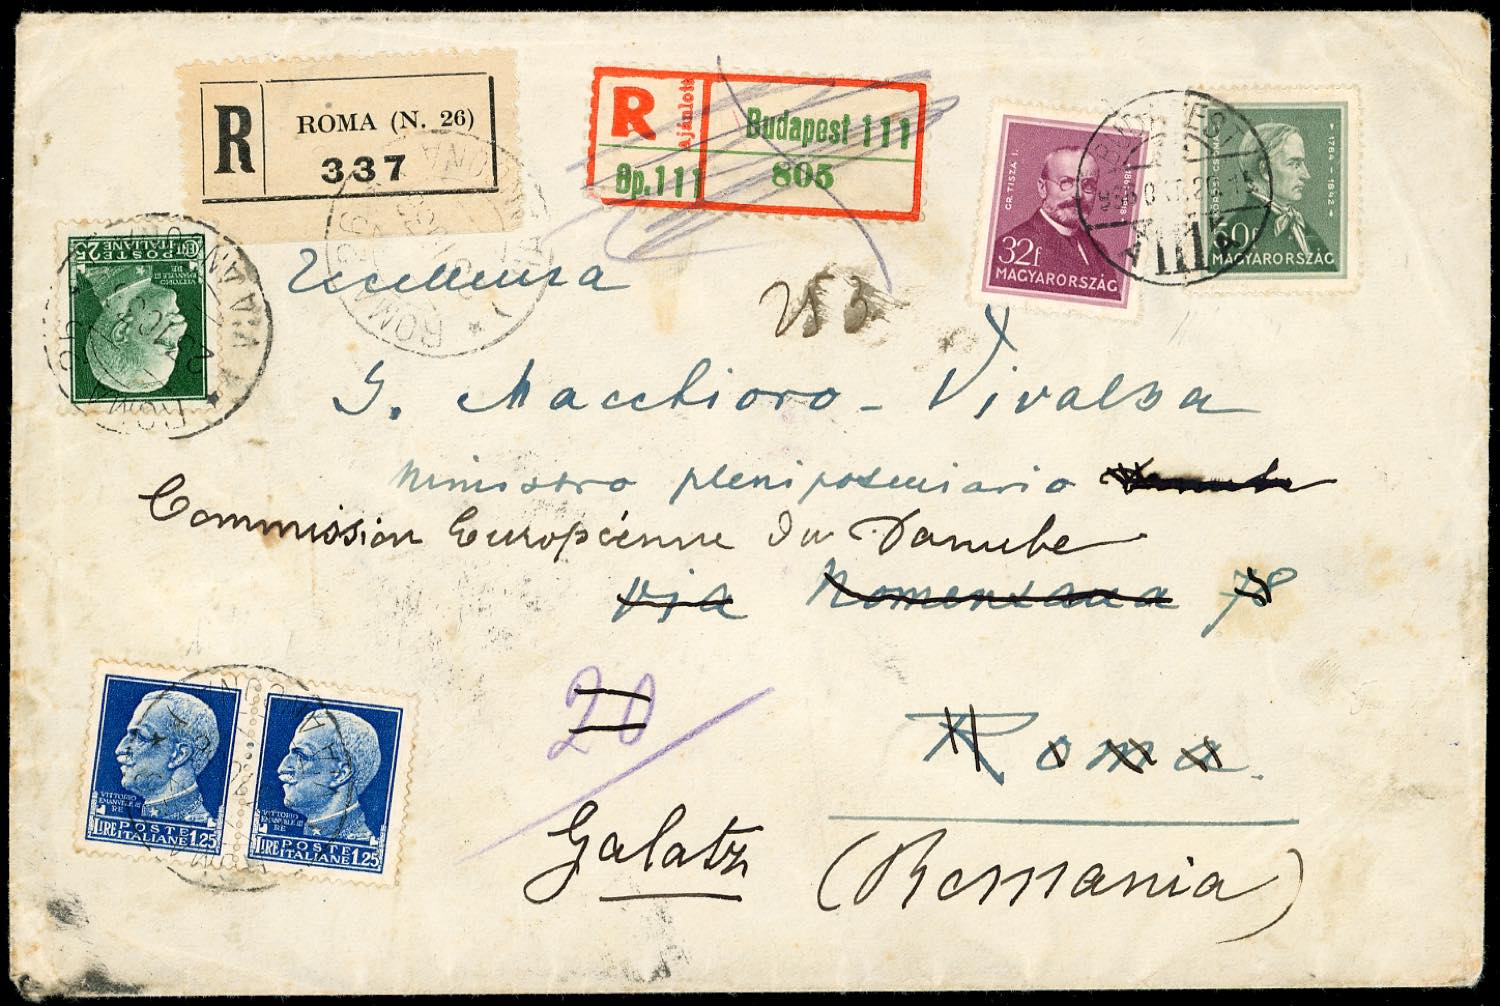 R
ROMA (N. 26)
337
R
Ajánlott
Budapest 111
Op.111
805
GR. TISZA I.
1861-1918
32f
MAGYARORSZÁG
1784 - 1842
50f
MAGYARORSZÁG
111
POSTE
ITALIANE
25
VITTORIO
EMANVELE III
RE
Eccellenza
253
G. Macchioro-Vivalba
Ministro plenipotenziario
Commission Européenne du Danube
Via Nomentana 78
20
Roma.
Galatz
(Romania)
VITTORIO
EMANVELE III
RE
LIRE POSTE
ITALIANE 1.25
VITTORIO
EMANVELE III
RE
LIRE POSTE
ITALIANE 1.25